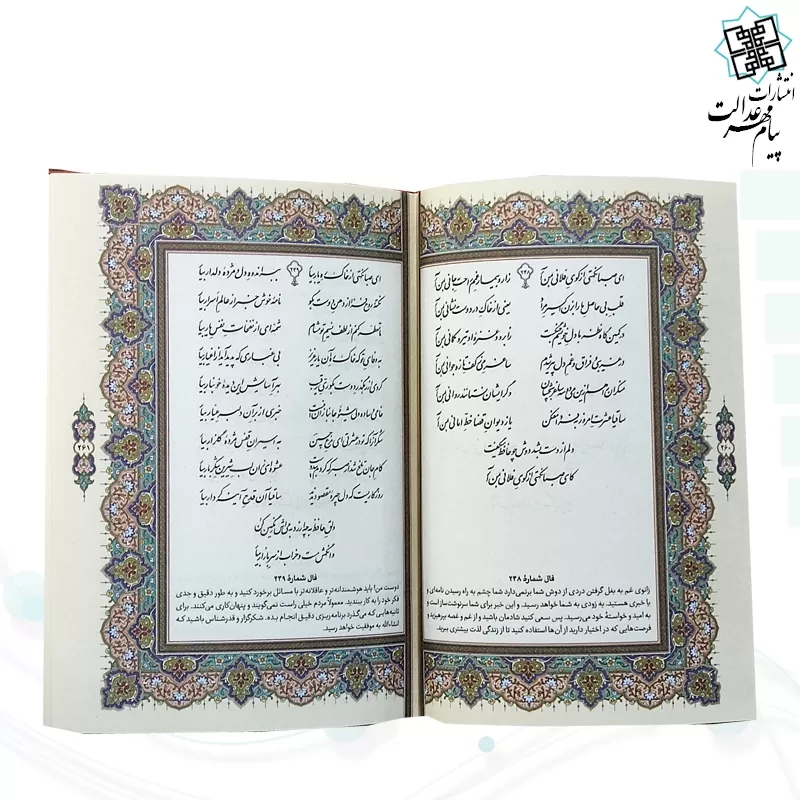 انتشارات
پیام مهر عدالت
۲۳۸
ای صبا نکهتی از کوی فلانی بمن آر زار و بیمار غمم راحت جانی بمن آر
قلب بی حاصل ما را بزن اکسیر مراد یعنی از خاک در دوست نشانی بمن آر
در کمین گاه نظر با دل خویشم جنگست ز ابرو و غمزه او تیر و کمانی بمن آر
در غریبی و فراق و غم دل پیر شدم ساغر می ز کف تازه جوانی بمن آر
منکران را هم ازین می دو سه ساغر بچشان وگر ایشان نستانند روانی بمن آر
ساقیا عشرت امروز بفردا مفکن یا ز دیوان قضا خط امانی بمن آر
دلم از دست بشد دوش چو حافظ میگفت
کای صبا نکهتی از کوی فلانی بمن آر
فال شمارهٔ ۲۳۸
زانوی غم به بغل گرفتن دردی از دوش شما برنمی‌دارد شما چشم به راه رسیدن نامه‌ای و
یا خبری هستید. به زودی به شما خواهد رسید. و این خبر برای شما سرنوشت‌ساز است و
به امید و خواستهٔ خود می‌رسید. پس سعی کنید شادمان باشید و از غم و غصه بپرهیزید و
فرصت‌هایی که در اختیار دارید از آن‌ها استفاده کنید تا از زندگی لذت بیشتری ببرید.
۲۶۰
۲۳۹
ای صبا نکهتی از خاک ره یار بیار ببر اندوه دل و مژده دلدار بیار
نکته روح فزا از دهن دوست بگو نامه خوش خبر از عالم اسرار بیار
تا معطر کنم از لطف نسیم تو مشام شمه‌ای از نفحات نفس یار بیار
به وفای تو که خاک ره آن یار عزیز بی غباری که پدید آید از اغیار بیار
گردی از رهگذر دوست بکوری رقیب بهر آسایش این دیده خونبار بیار
خامی و ساده دلی شیوه جانبازان نیست خبری از بر آن دلبر عیار بیار
شکر آنرا که تو در عشرتی ای مرغ چمن به اسیران قفس مژده گلزار بیار
کام جان تلخ شد از صبر که کردم بی دوست عشوه‌ای زان لب شیرین شکربار بیار
روزگاریست که دل چهره مقصود ندید ساقیا آن قدح آینه کردار بیار
دلق حافظ بچه ارزد به می‌اش رنگین کن
وانگهش مست و خراب از سر بازار بیار
فال شمارهٔ ۲۳۹
دوست من! باید هوشمندانه‌تر و عاقلانه‌تر با مسائل برخورد کنید و به طور دقیق و جدی
فکر خود را به کار ببندید. معمولاً مردم خیلی راست نمی‌گویند و پنهان‌کاری می‌کنند. برای
ثانیه‌هایی که می‌گذرد برنامه‌ریزی دقیق انجام بده. شکرگزار و قدرشناس باشید که
انشاءالله به موفقیت خواهد رسید.
۲۶۱